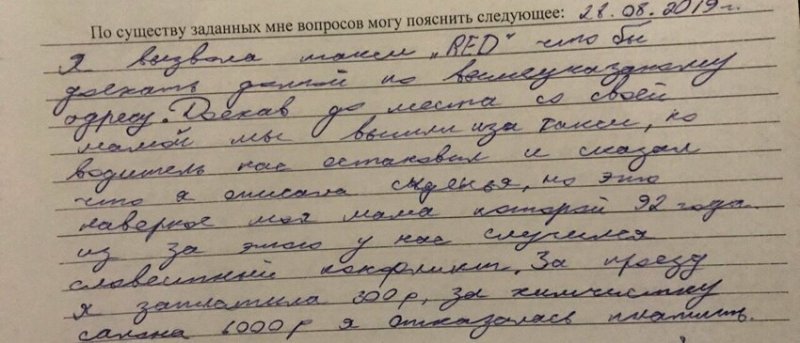 По существу заданных мне вопросов могу пояснить следующее: 28.08.2019 г.
Я вызвала такси „RED" что бы
доехать домой по вышеуказаному
адресу. Доехав до места со своей
мамой мы вышли иза такси, но
водитель нас остановил и сказал
что я описала сиденья, но это
наверное моя мама которой 92 года.
из за этого у нас случился
словестный конфликт. За проезд
я заплатила 300 р, за химчистку
салона 6000 р я отказалась платить.